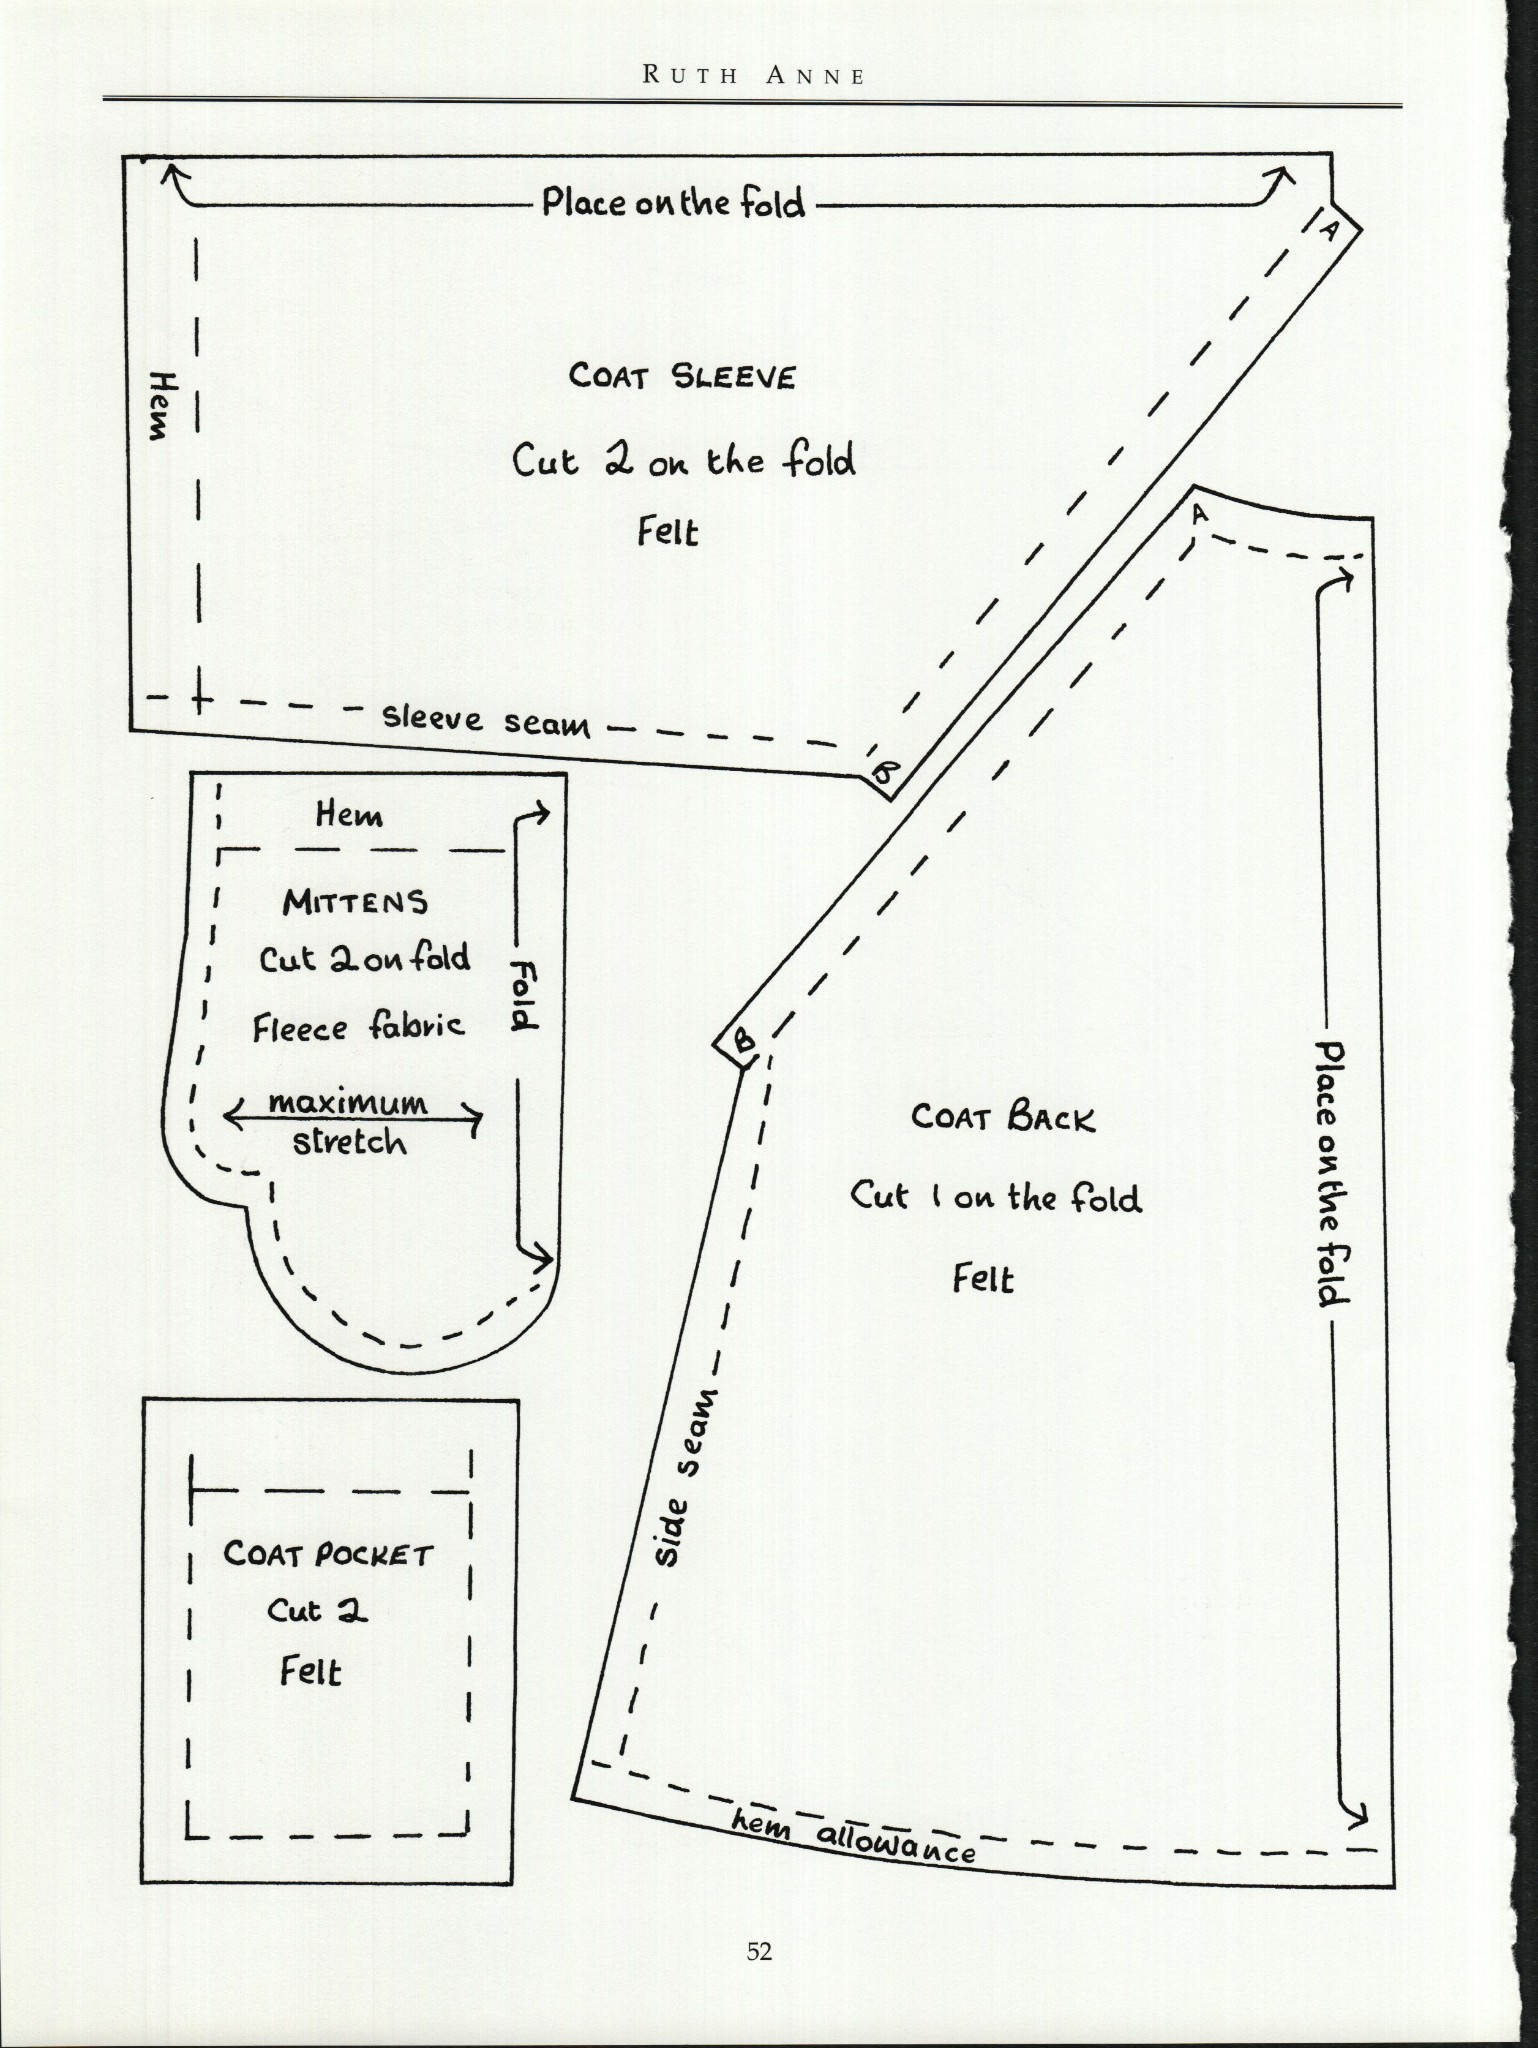 RUTH ANNE
Place on the fold
A
Hem
COAT SLEEVE
Cut 2 on the fold
Felt
sleeve seam
B
A
Place on the fold
B
COAT BACK
Cut 1 on the fold
Felt
side seam
hem allowance
Hem
MITTENS
Cut 2 on fold
Fleece fabric
Fold
maximum
stretch
COAT POCKET
Cut 2
Felt
52